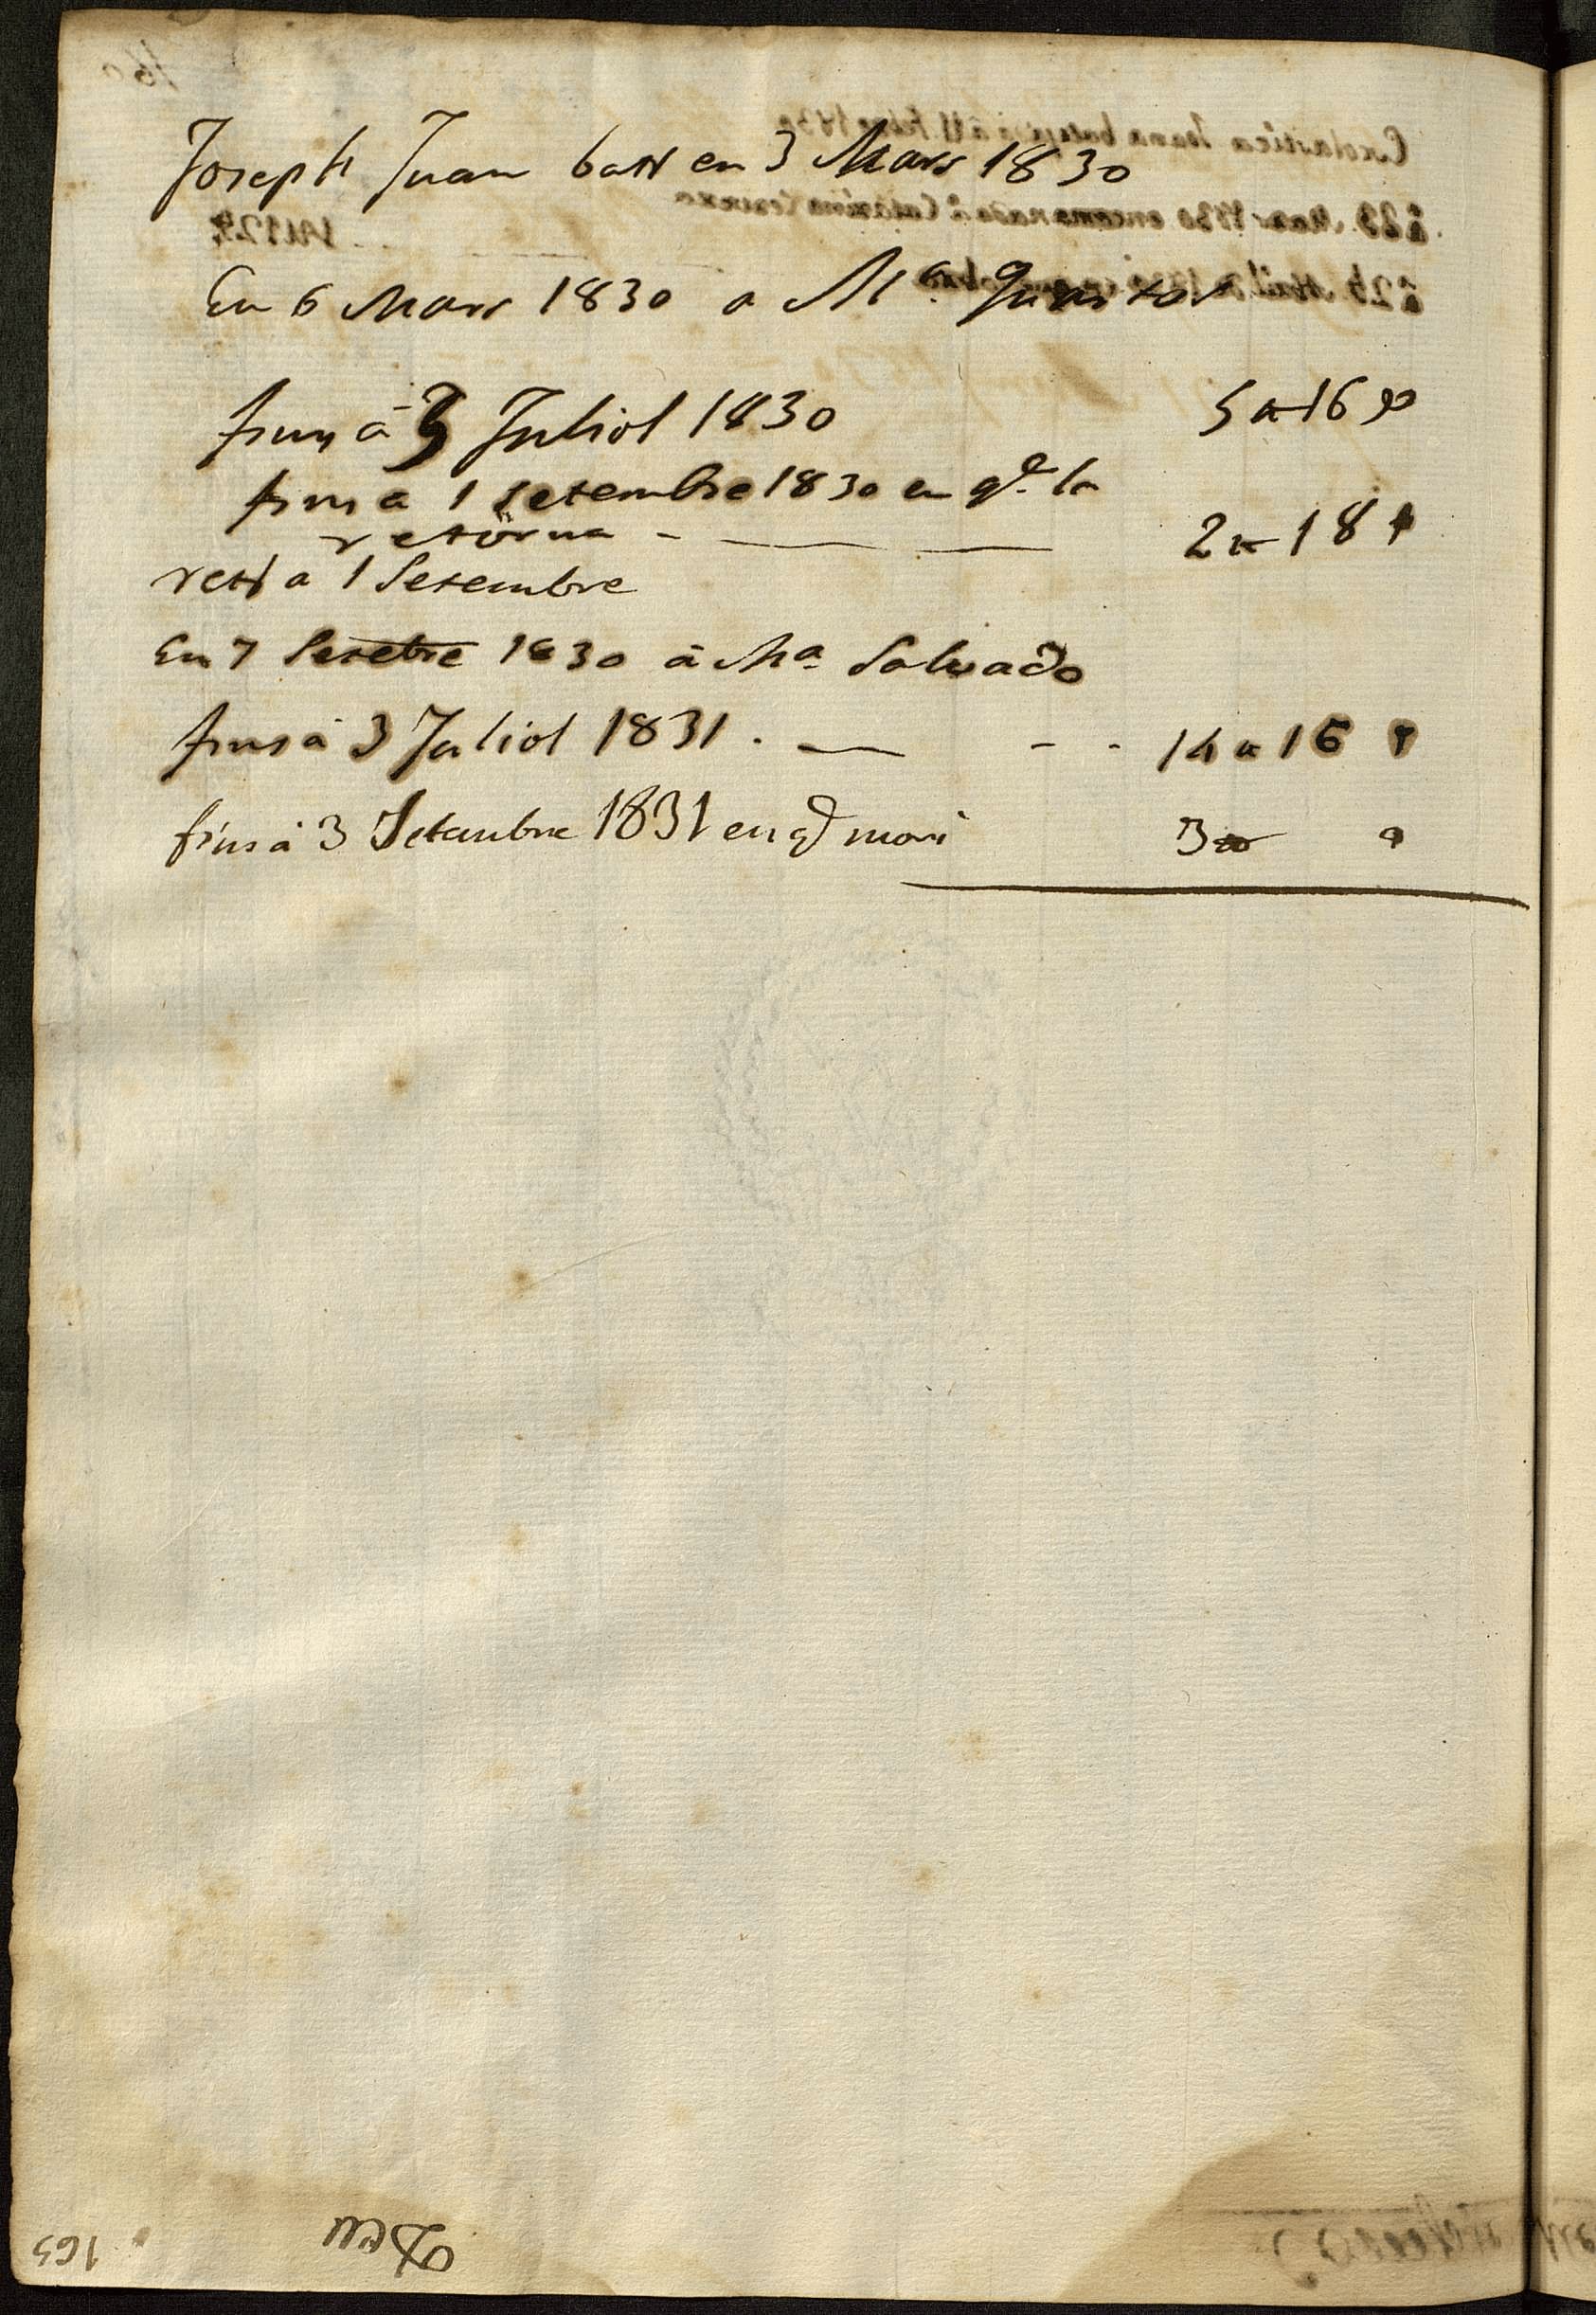 Joseph Juan batt en 3 Mars 1830
En 6 Mars 1830 a Mª
fins á 3 Juliol 1830 5 " 16
fins a 1 Setembre 1830 en q.e la
retorna - — — 2 " 18
rest a 1 Setembre
En 7 Setebre 1830 á Mª Salvado
fins á 3 Juliol 1831 . — - - 14 " 16
fins á 3 Setembre 1831 en q mori 3 "
Deu
163